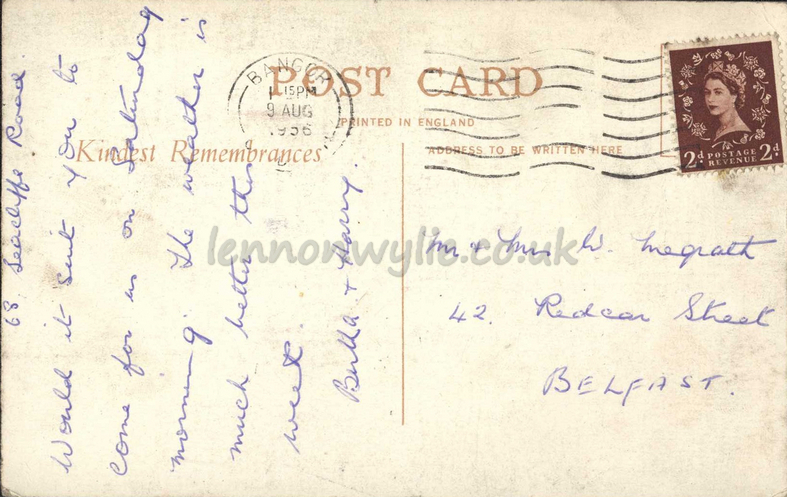 POST CARD
BANGOR
1 15PM
9 AUG
1956
PRINTED IN ENGLAND
Kindest Remembrances
ADDRESS TO BE WRITTEN HERE
2d POSTAGE REVENUE 2d
68 Seacliffe Road.
Would it suit you to
come for us on Saturday
morning. The weather is
much better this
week
Bella + Harry.
Mr + Mrs W. Megrath
42. Redcar Street
BELFAST.
lennonwylie.co.uk